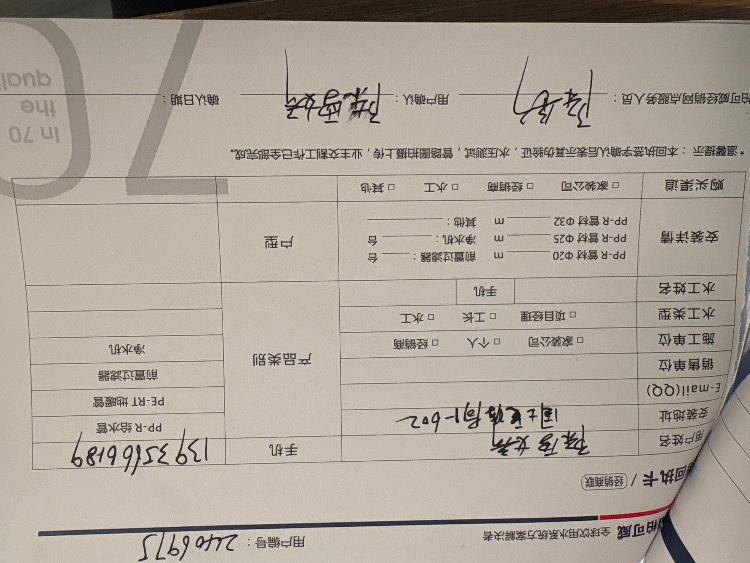 柏可威 全球饮用水系统方案解决者 用户编号：2406975
回执卡 / 经销商联
用户姓名 手机 1393566189
安装地址 PP-R 给水管
E-mail(QQ) PE-RT 地暖管
销售单位 产品类别 前置过滤器
施工单位 □ 家装公司 □ 个人 □ 经销商 净水机
水工类型 □ 项目经理 □ 工长 □ 水工
水工姓名 手机
安装详情 户型
PP-R 管材 Φ20 m 前置过滤器： 台
PP-R 管材 Φ25 m 净水机： 台
PP-R 管材 Φ32 m 其他：
购买渠道 □ 家装公司 □ 经销商 □ 水工 □ 其他
*温馨提示：本回执签字确认后表示真伪验证，水压测试，管路图拍摄上传，业主交割工作已全部完成。
柏可威经销网点服务人员： 用户确认： 确认日期：
In 70
the
quali
70